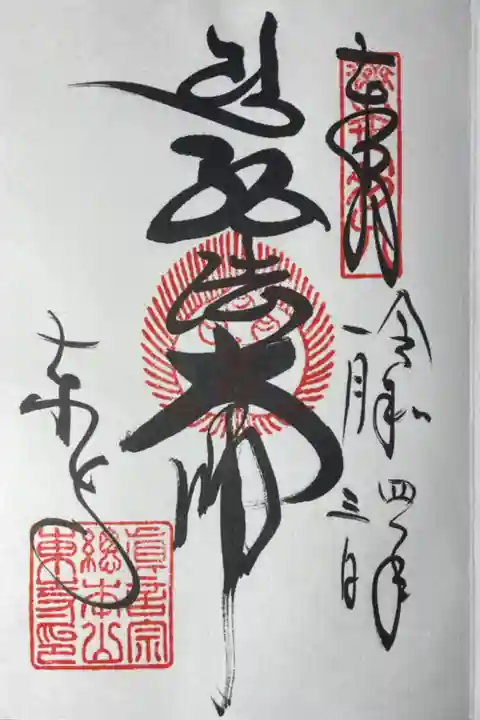 奉拝
令和四年
一月三日
弘法大師
東寺
真言宗
総本山
東寺印